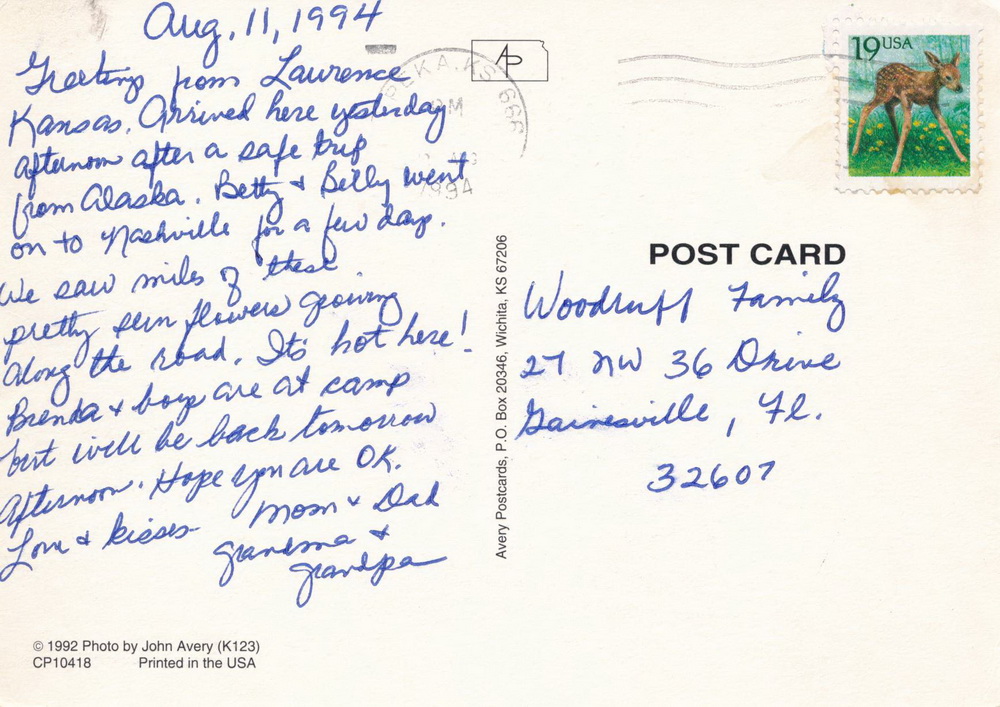 Aug, 11, 1994
Greetings from Lawrence
Kansas. Arrived here yesterday
afternoon after a safe trip
from Alaska. Betty & Billy went
on to Nashville for a few days.
We saw miles of these
pretty sun flowers growing
along the road. It's hot here!
Brenda & boys are at camp
but will be back tomorrow
afternoon. Hope you are OK.
Love & kisses Mom & Dad
grandma &
grandpa
© 1992 Photo by John Avery (K123)
CP10418 Printed in the USA
Avery Postcards, P.O. Box 20346, Wichita, KS 67206
KA, KS 666
PM
1994
19 USA
POST CARD
Woodruff Family
27 NW 36 Drive
Gainesville, Fl.
32607